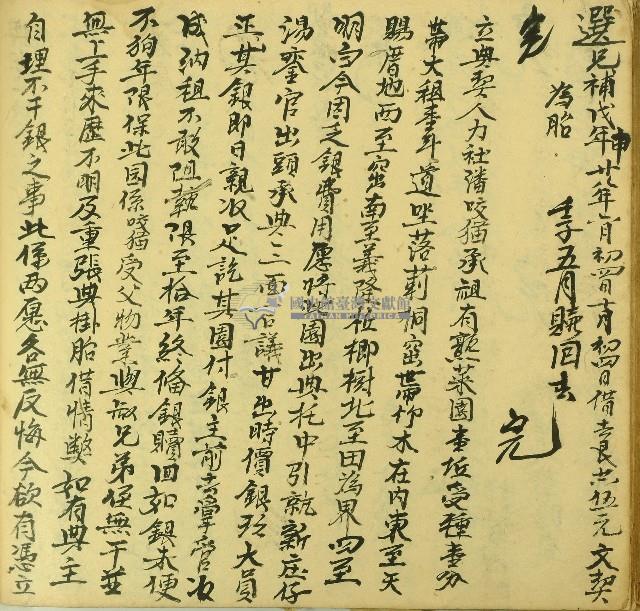 選兄補戊申年廿八年六月初四日十月初四日借去艮六伍元文契
為胎　　壬子五月贖回去
完　　完
立典契人力社潘咬猫承祖有熟菜園壹坵受種壹分
帶大租壹斗道坐落莿洞窑帶竹木在內東至天
賜厝地西至窑南至義隆社榔樹北至田為界四至
明白今因乏銀費用愿將此園出典托中引就新庄仔
湯鑾官出頭承典三面言議甘出時價銀玖大員
正其銀即日親收足訖其園付銀主前去掌管收
成納租不敢阻執限至拾年終備銀贖回如銀未便
不狗年限保此園係咬猫受父物業與叔兄弟侄無干並
無上手來歷不明及重張典掛胎借情弊如有典主
自理不干銀主之事此係両愿各無反悔今欲有憑立
國史館臺灣文獻館
TAIWAN HISTORICA